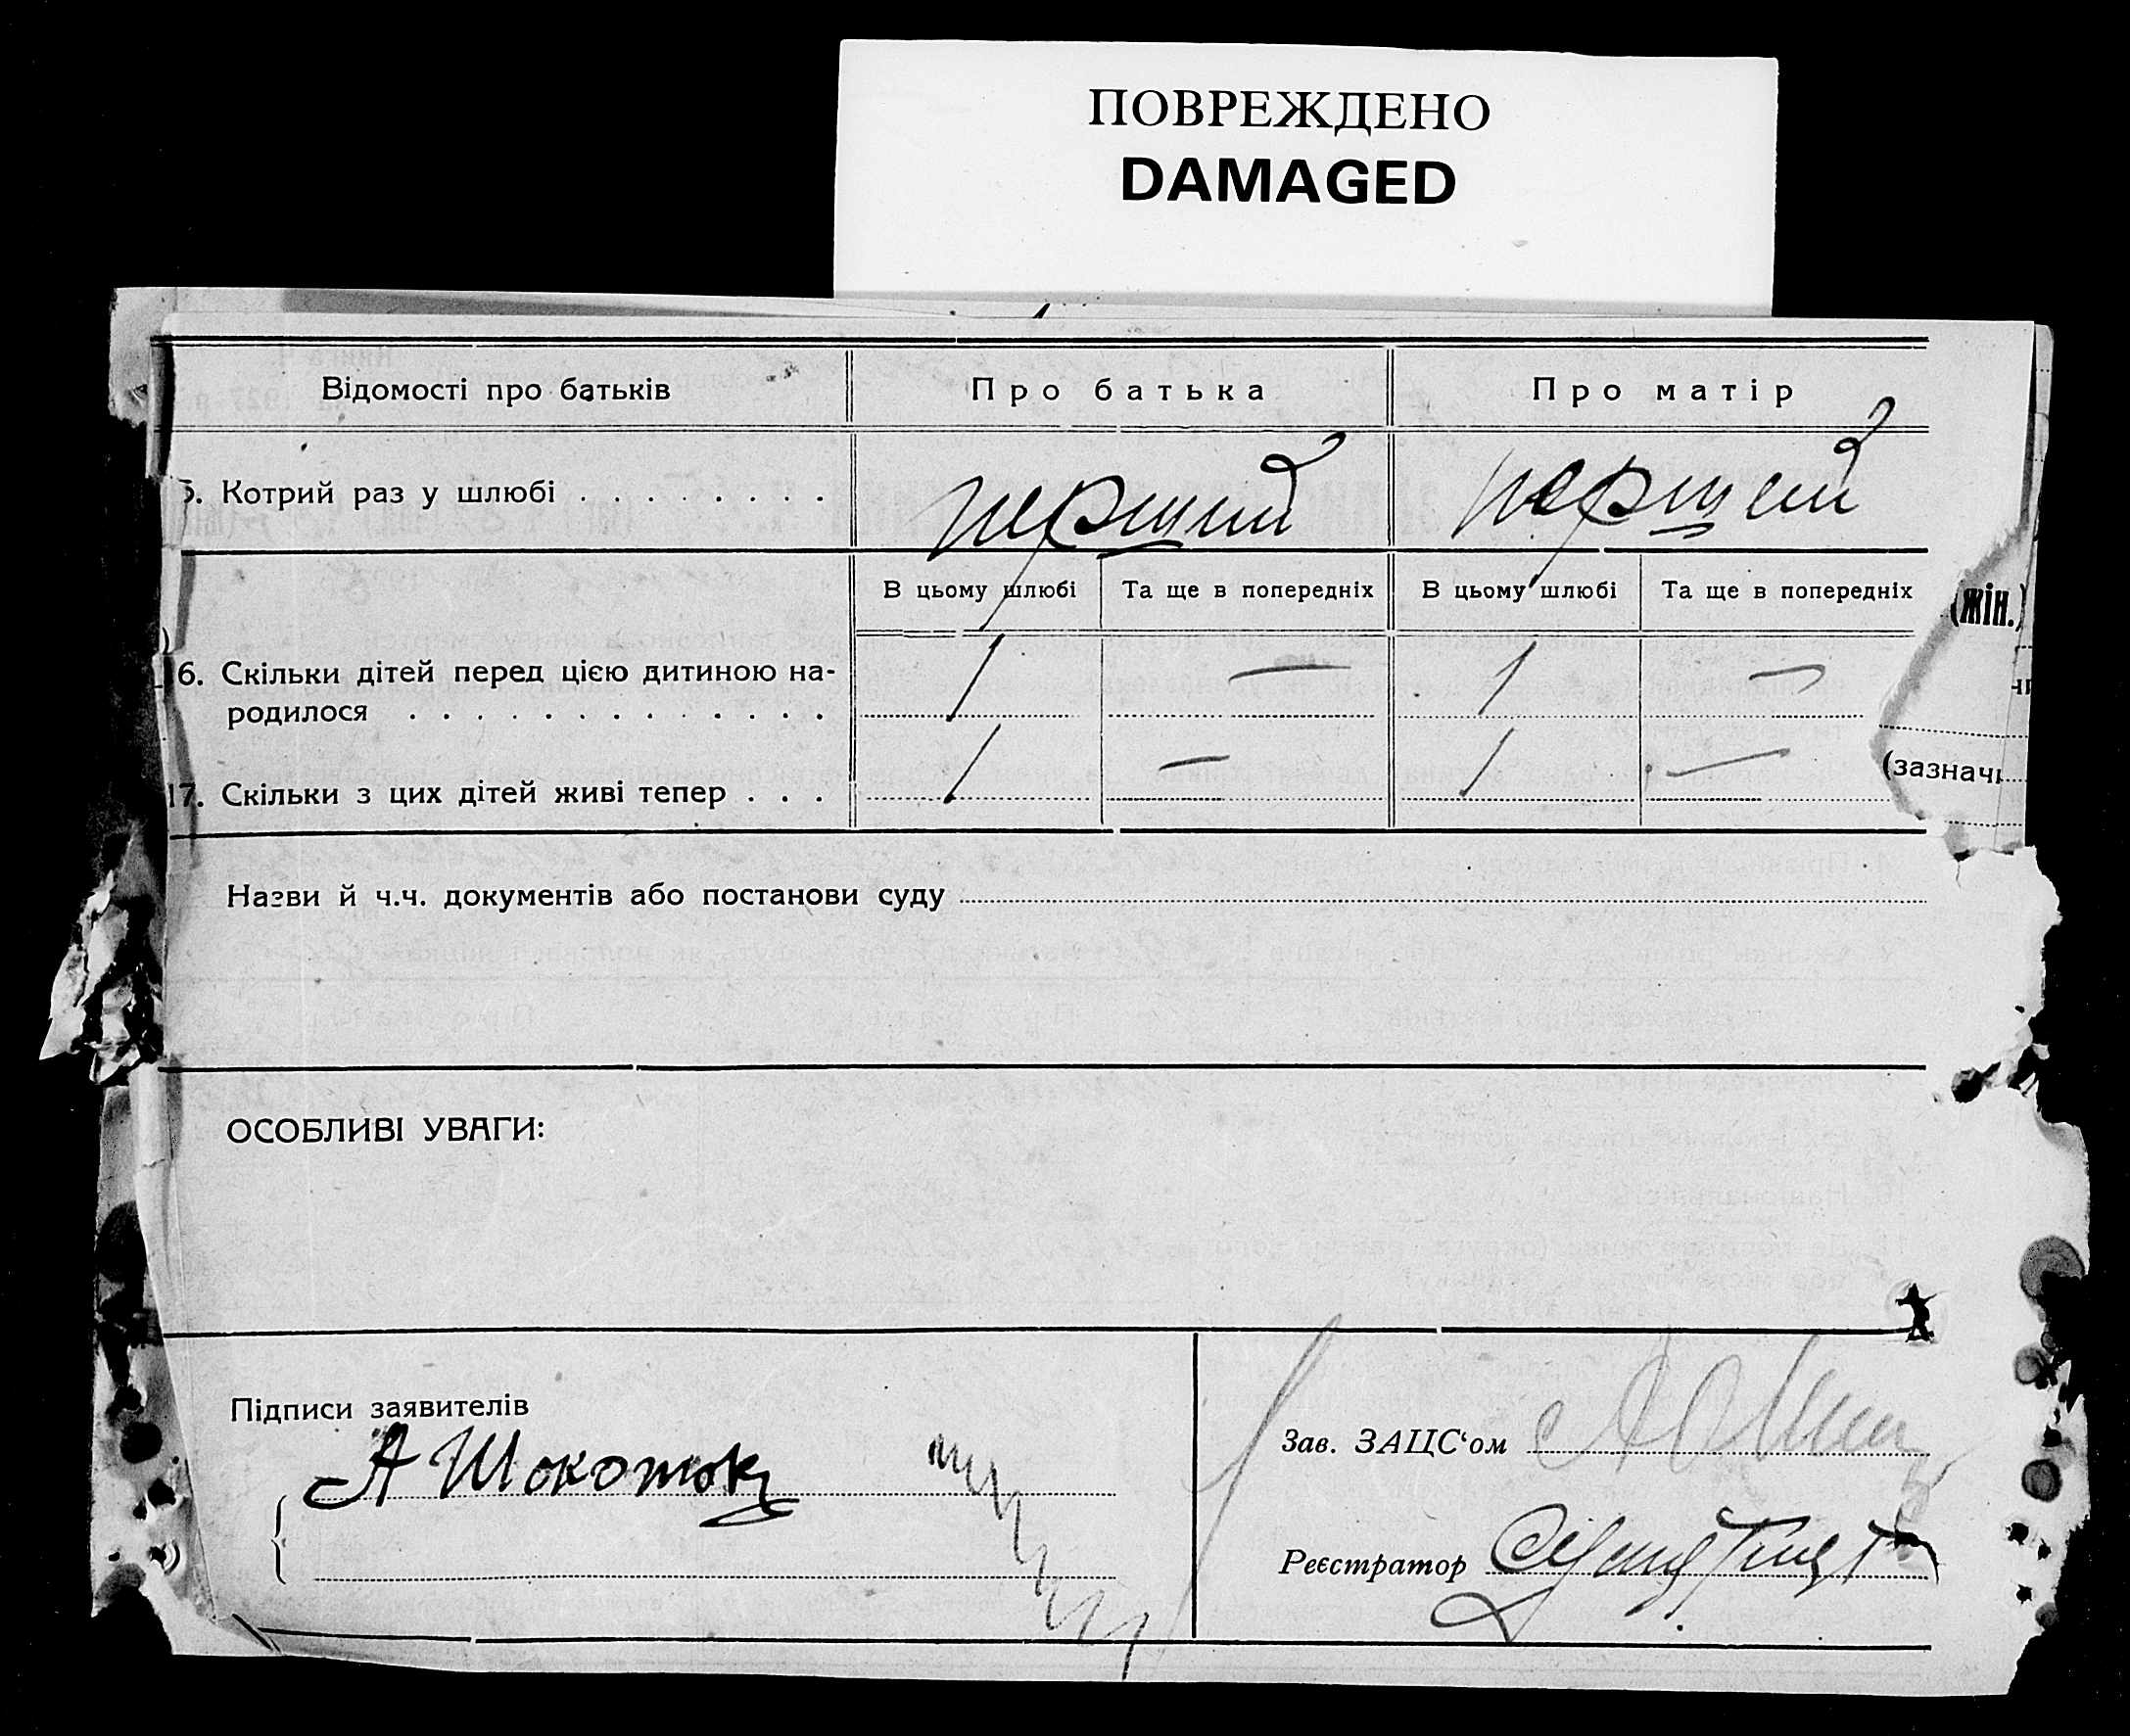 ПОВРЕЖДЕНО
DAMAGED
Відомості про батьків Про батька Про матір
5. Котрий раз у шлюбі . . . . . . . . перший перший
В цьому шлюбі Та ще в попередніх В цьому шлюбі Та ще в попередніх
(жін.)
6. Скільки дітей перед цією дитиною на-
родилося . . . . . . . . . . . . . 1 — 1 —
17. Скільки з цих дітей живі тепер . . . 1 — 1 —
(зазначи
Назви й ч.ч. документів або постанови суду
ОСОБЛИВІ УВАГИ:
Підписи заявителів
А Шокоток
Зав. ЗАЦС‘ом
Реєстратор